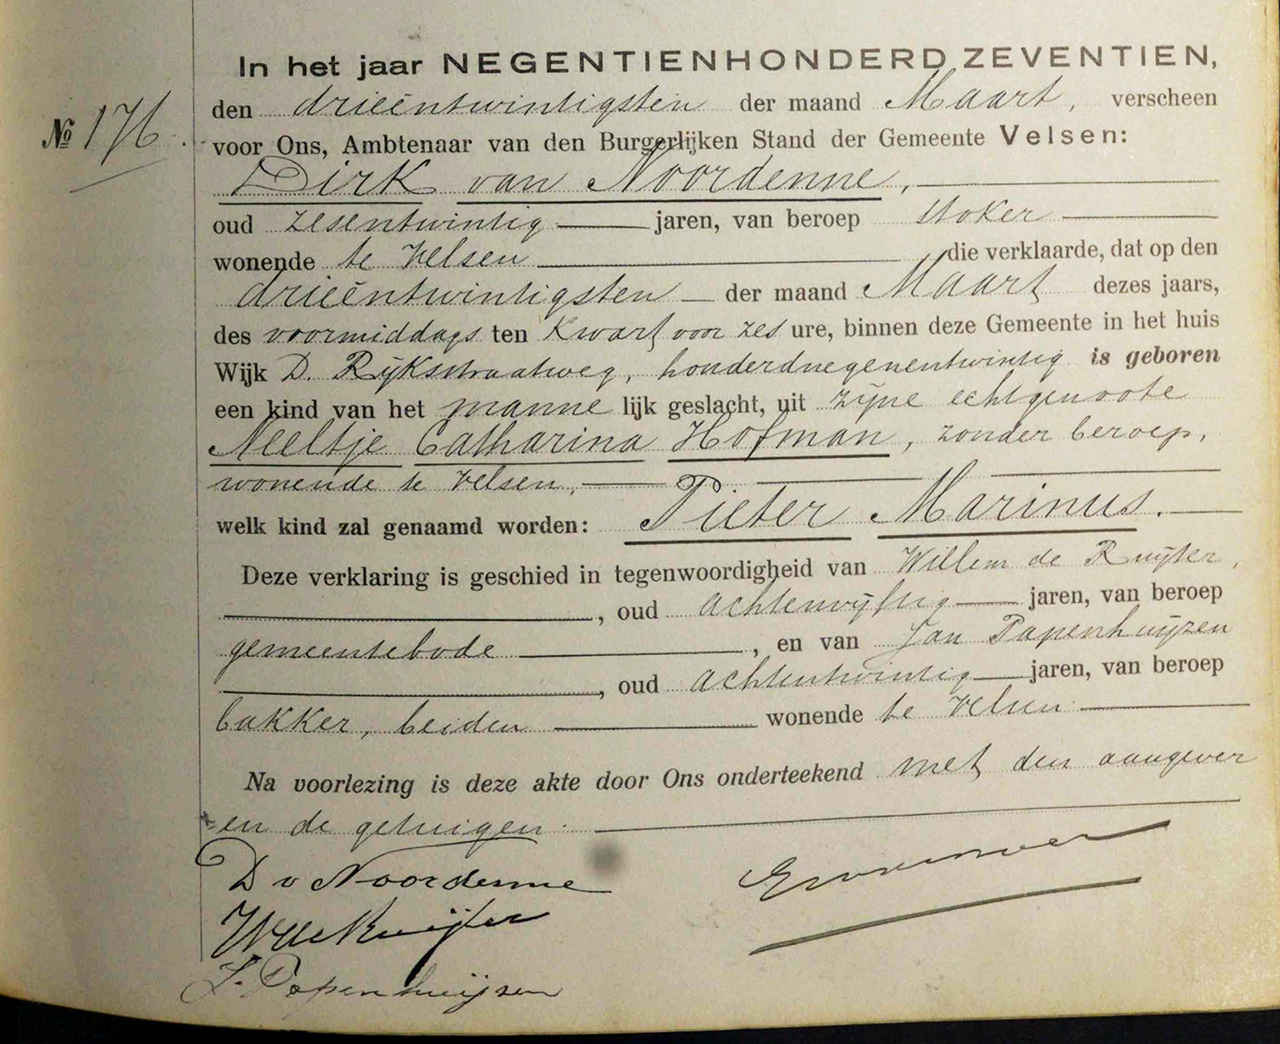 In het jaar NEGENTIENHONDERD ZEVENTIEN,
den drieëntwintigsten der maand Maart, verscheen
No 176.
voor Ons, Ambtenaar van den Burgerlijken Stand der Gemeente Velsen:
Dirk van Noordenne,
oud zesentwintig jaren, van beroep stoker
wonende te Velsen die verklaarde, dat op den
drieëntwintigsten der maand Maart dezes jaars,
des voormiddags ten kwart voor zes ure, binnen deze Gemeente in het huis
Wijk D. Rijksstraatweg, honderdnegenentwintig is geboren
een kind van het mannelijk geslacht, uit zijne echtgenoote
Neeltje Catharina Hofman, zonder beroep,
wonende te Velsen,
welk kind zal genaamd worden: Pieter Marinus.
Deze verklaring is geschied in tegenwoordigheid van Willem de Ruijter,
, oud achtenvijftig jaren, van beroep
gemeentebode, en van Jan Papenhuijzen
, oud achtentwintig jaren, van beroep
bakker, beiden wonende te Velsen
Na voorlezing is deze akte door Ons onderteekend met den aangever
en de getuigen.
D v Noordenne
W de Ruijter
J. Papenhuijzen